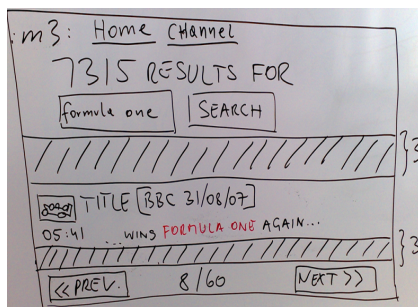 :m3: Home Channel
7315 RESULTS FOR
formula one SEARCH
}3
TITLE [BBC 31/08/07]
05:41 ...WINS FORMULA ONE AGAIN...
}3
<<PREV. 8/60 NEXT>>